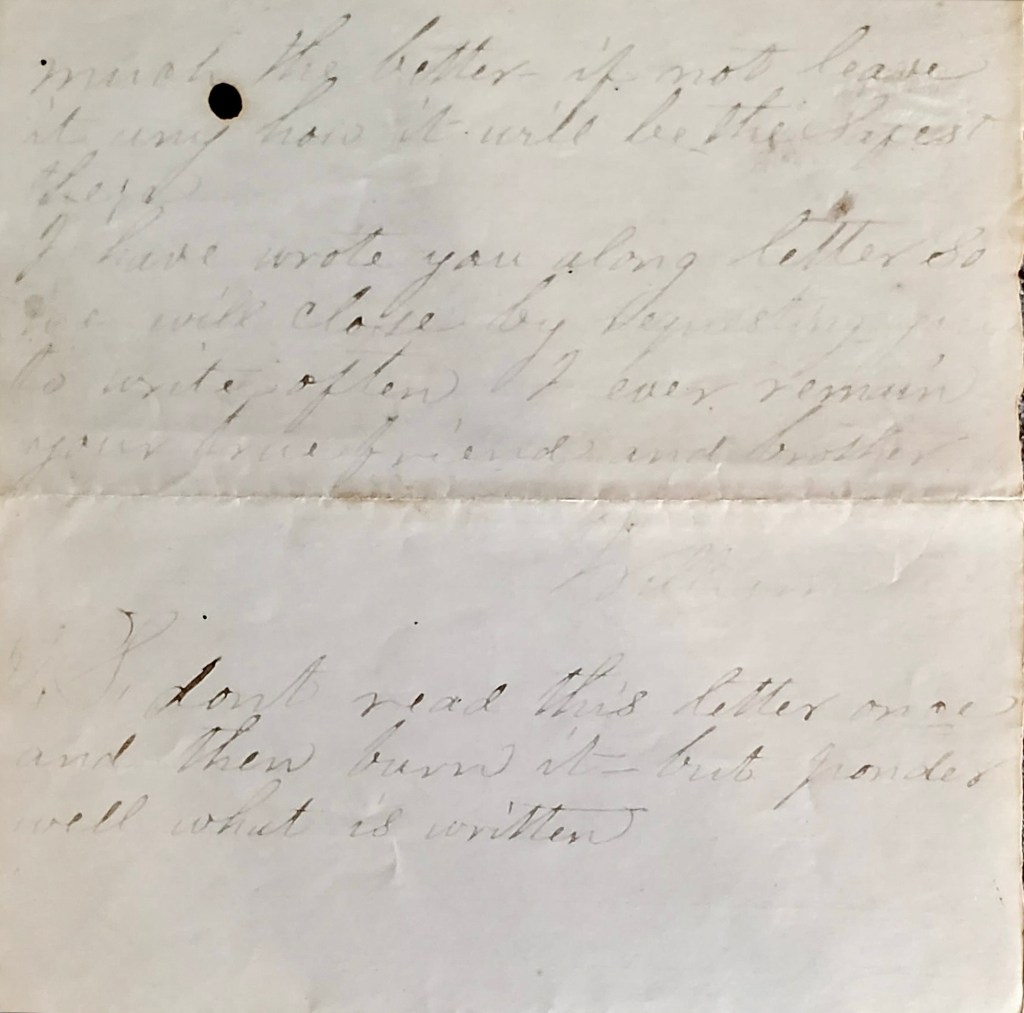 much the better - if not leave
it any how it will be the
then
I have wrote you along letter so
we will close by requesting you
to write often I ever remain
your true friend and brother
William
P. S. dont read this letter once
and then burn it - but ponder
well what is written